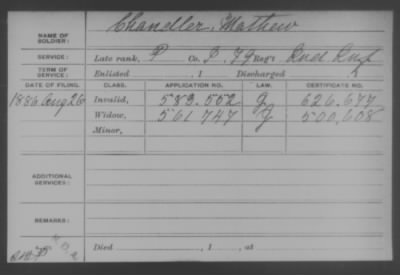 Chandler, Mathew
NAME OF SOLDIER:
SERVICE: Late rank, P Co. I, 79 Reg't Ind Inf
TERM OF SERVICE: Enlisted , 1 Discharged , 1
DATE OF FILING. CLASS. APPLICATION NO. LAW. CERTIFICATE NO.
1886 Aug 26 Invalid, 589.552 J 626.677
Widow, 561747 J 500,608
Minor,
ADDITIONAL SERVICES:
REMARKS:
Died , 1 , at